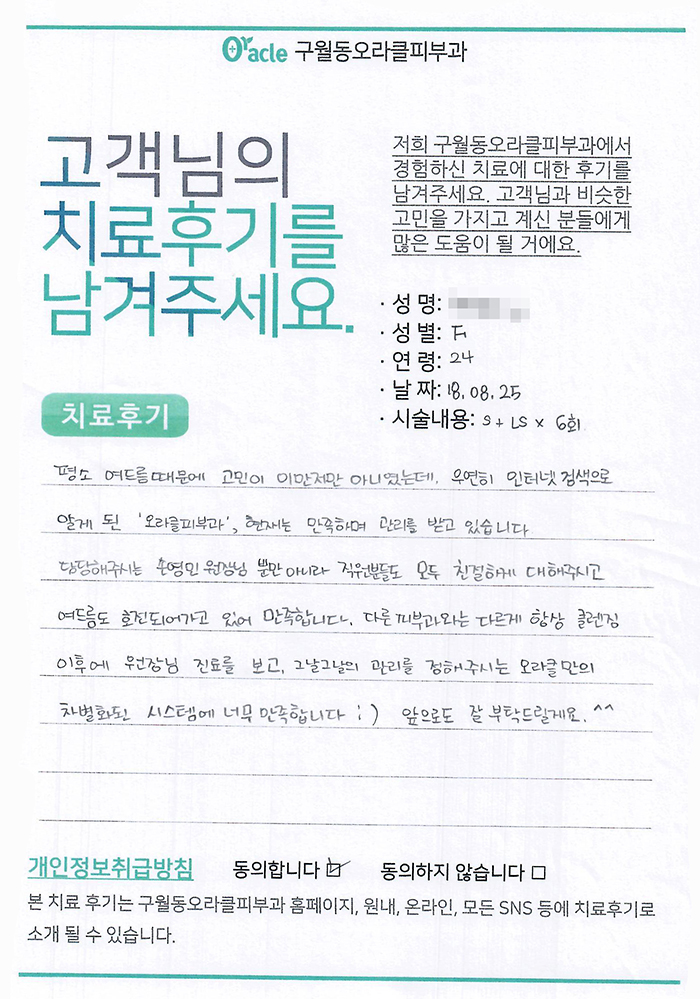 Oracle 구월동오라클피부과
고객님의
치료후기를
남겨주세요.
저희 구월동오라클피부과에서
경험하신 치료에 대한 후기를
남겨주세요. 고객님과 비슷한
고민을 가지고 계신 분들에게
많은 도움이 될 거에요.
· 성 명:
· 성 별: F
· 연 령: 24
· 날 짜: 18. 08. 25
· 시술내용: S + LS x 6회
치료후기
평소 여드름때문에 고민이 이만저만 아니였는데. 우연히 인터넷 검색으로
알게 된 '오라클피부과', 현재는 만족하며 관리를 받고 있습니다
담당해주시는 손영민 원장님 뿐만 아니라 직원분들도 모두 친절하게 대해주시고
여드름도 호전되어가고 있어 만족합니다. 다른 피부과와는 다르게 항상 클렌징
이후에 원장님 진료를 보고, 그날그날의 관리를 정해주시는 오라클만의
차별화된 시스템에 너무 만족합니다 : ) 앞으로도 잘 부탁드릴게요. ^^
개인정보취급방침 동의합니다 ☑ 동의하지 않습니다 □
본 치료 후기는 구월동오라클피부과 홈페이지, 원내, 온라인, 모든 SNS 등에 치료후기로
소개 될 수 있습니다.